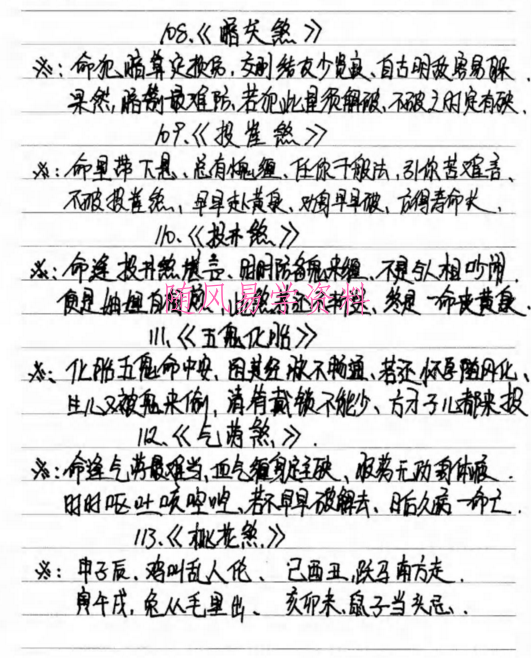 108.《暗箭煞》
※：命犯暗算实投防，交财结友少宽宜、自古明敌容易躲
果然，暗箭最难防，若犯此星须解破、不破之时定有破
109.《投崖煞》
※：命里带下是、总有愧缠、任你千般法，引你苦难言、
不破投崖煞，早早赴黄泉、劝君早早破，方得寿命长，
110.《投井煞》
※：命逢投井煞、时时防备鬼来缠、不是与人相吵闹
便是、终是一命丧黄泉
随风易学资料
111.《五鬼化胎》
※：化胎五鬼命中安、因其经脉不畅通、若还怀孕随风化、
生儿又被鬼来偷，不能少、方才子儿都来投
112.《气满煞》.
※：命逢气满最难当，血气、服药无功
时时呕吐咳、若不早早破解去、日后久病一命亡.
113.《桃花煞》
※：申子辰，鸡叫乱人伦、 巳酉丑，跃马南方走.
寅午戌，兔从毛里出、 亥卯未，鼠子当头忌.